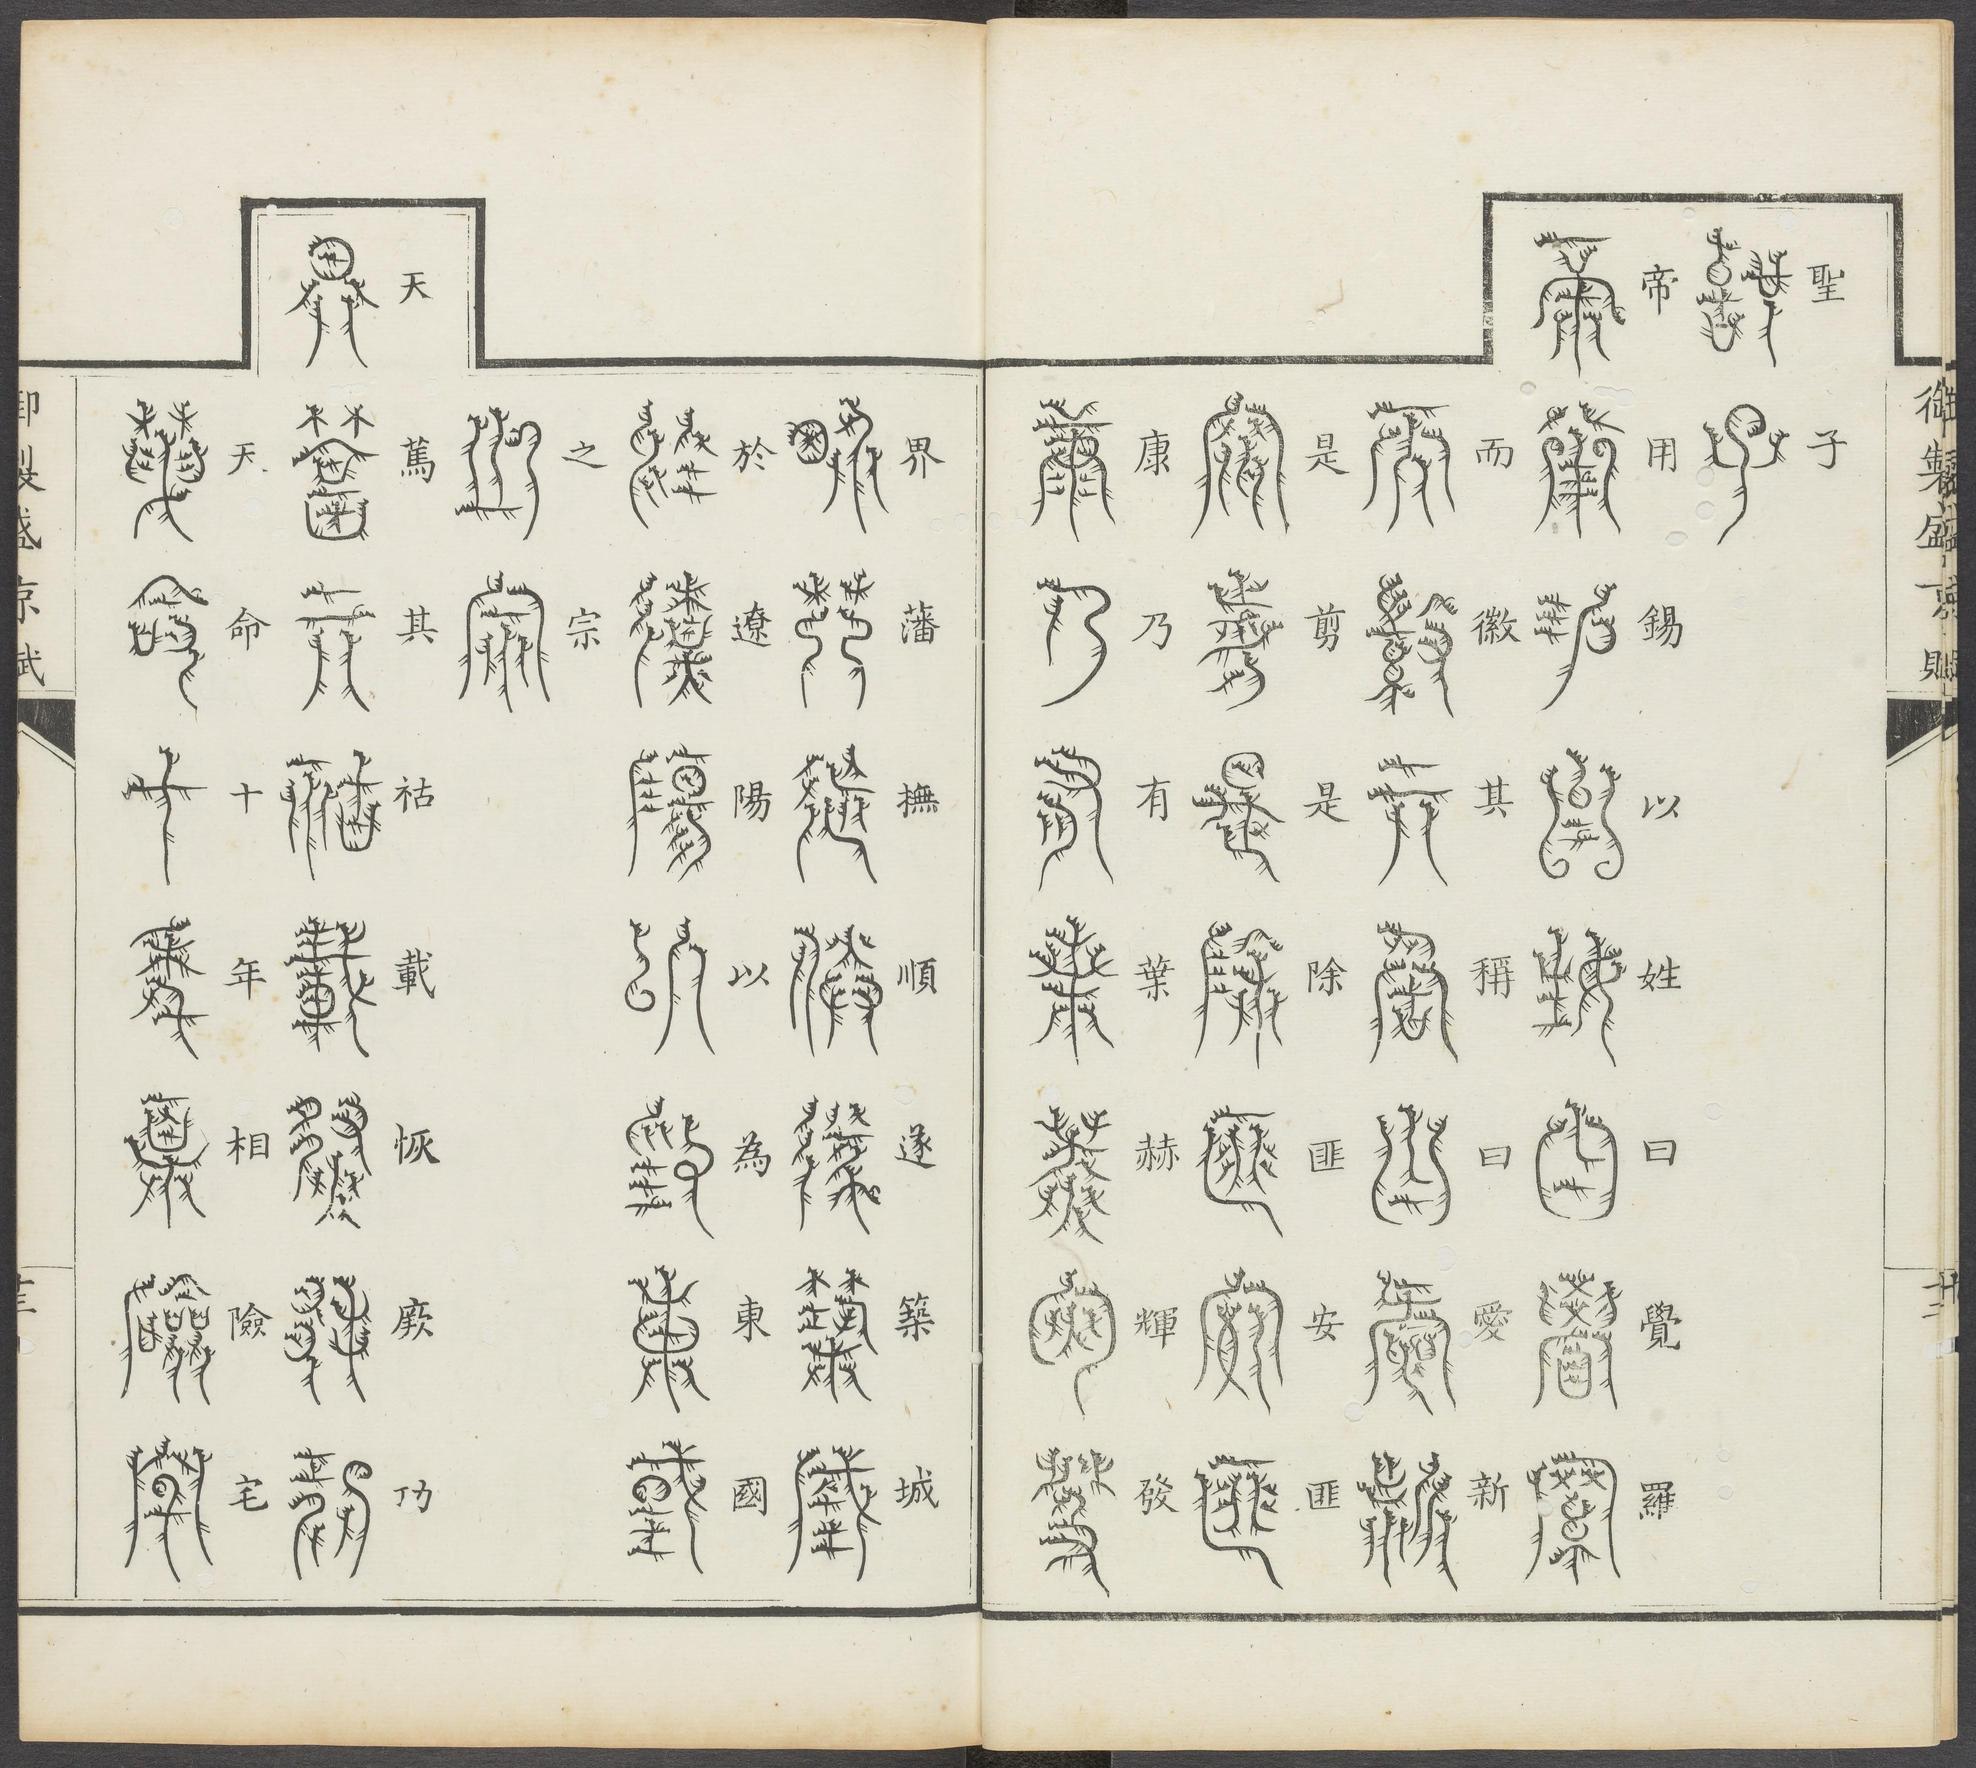 聖子
帝用錫以姓曰覺羅
而徽其稱曰愛新
是剪是除匪安匪
康乃有葉赫輝發
界藩撫順遂築城
於遼陽以為東國
之宗
天篤其祜載恢厥功
天命十年相險宅
御製盛京賦